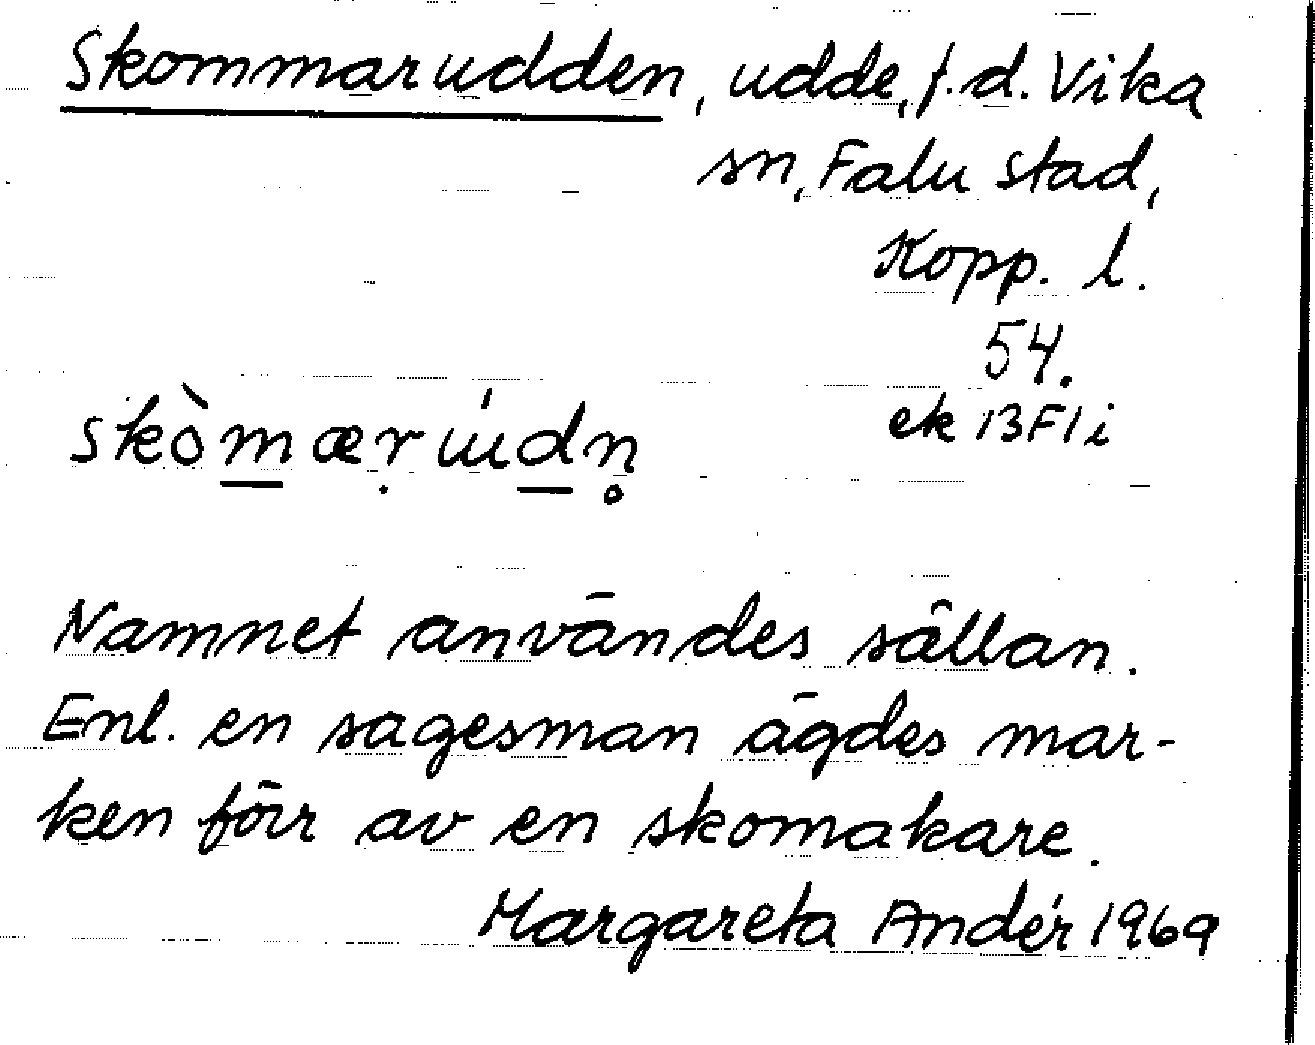 Skommarudden, udde, f.d. Vika
sn, Falu stad,
Kopp. l.
54.
ek 13F1i
skòmærɯ́dn̥
Namnet användes sällan.
Enl. en sagesman ägdes mar-
ken förr av en skomakare.
Margareta Andér 1969